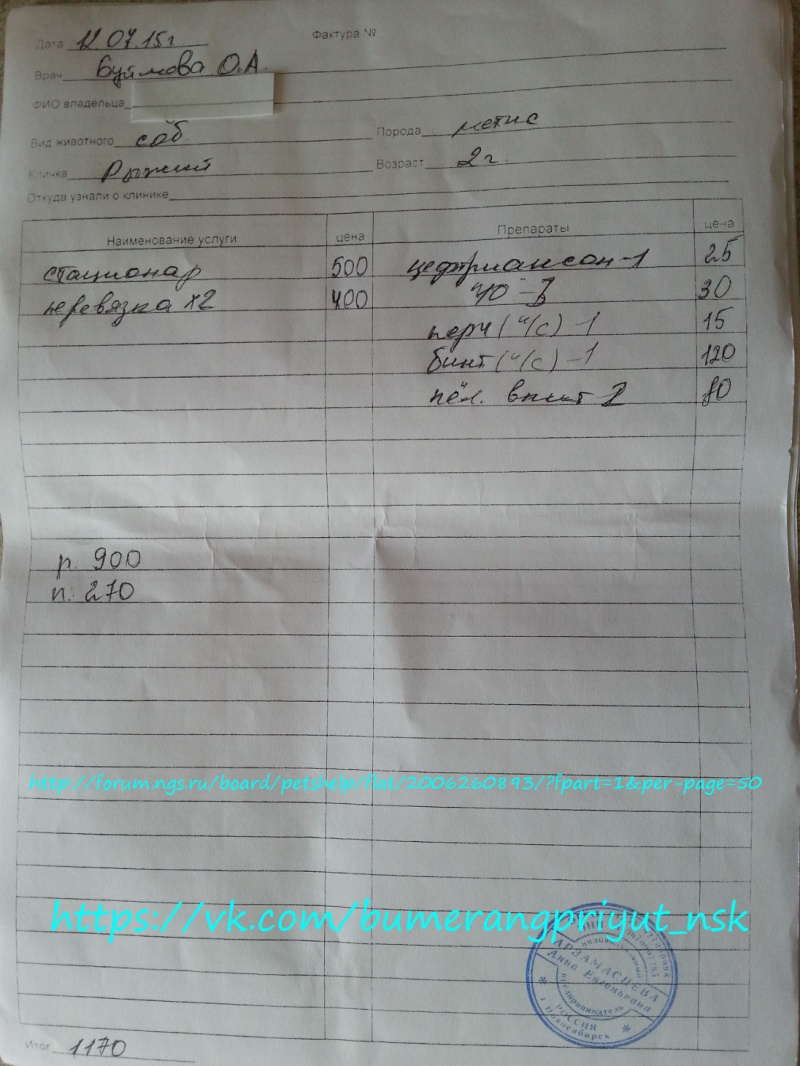 Фактура №
Дата 12.07.15г
Врач Буймова О.А.
ФИО владельца
Вид животного соб Порода метис
Кличка Рыжий Возраст 2 г.
Откуда узнали о клинике
Наименование услуги цена Препараты цена
стационар 500 цефтриаксон-1 25
перевязка х2 400 30
перч (н/с) -1 15
бинт (н/с) -1 120
пел. впит 2 80
р. 900
п. 270
http://forum.ngs.ru/board/petshelp/flat/2006260893/?fpart=1&per-page=50
https://vk.com/bumerangpriyut_nsk
АРЗАМАСЦЕВА
Анна Евгеньевна
предприниматель
РОССИЯ
г. Новосибирск
Итог 1170